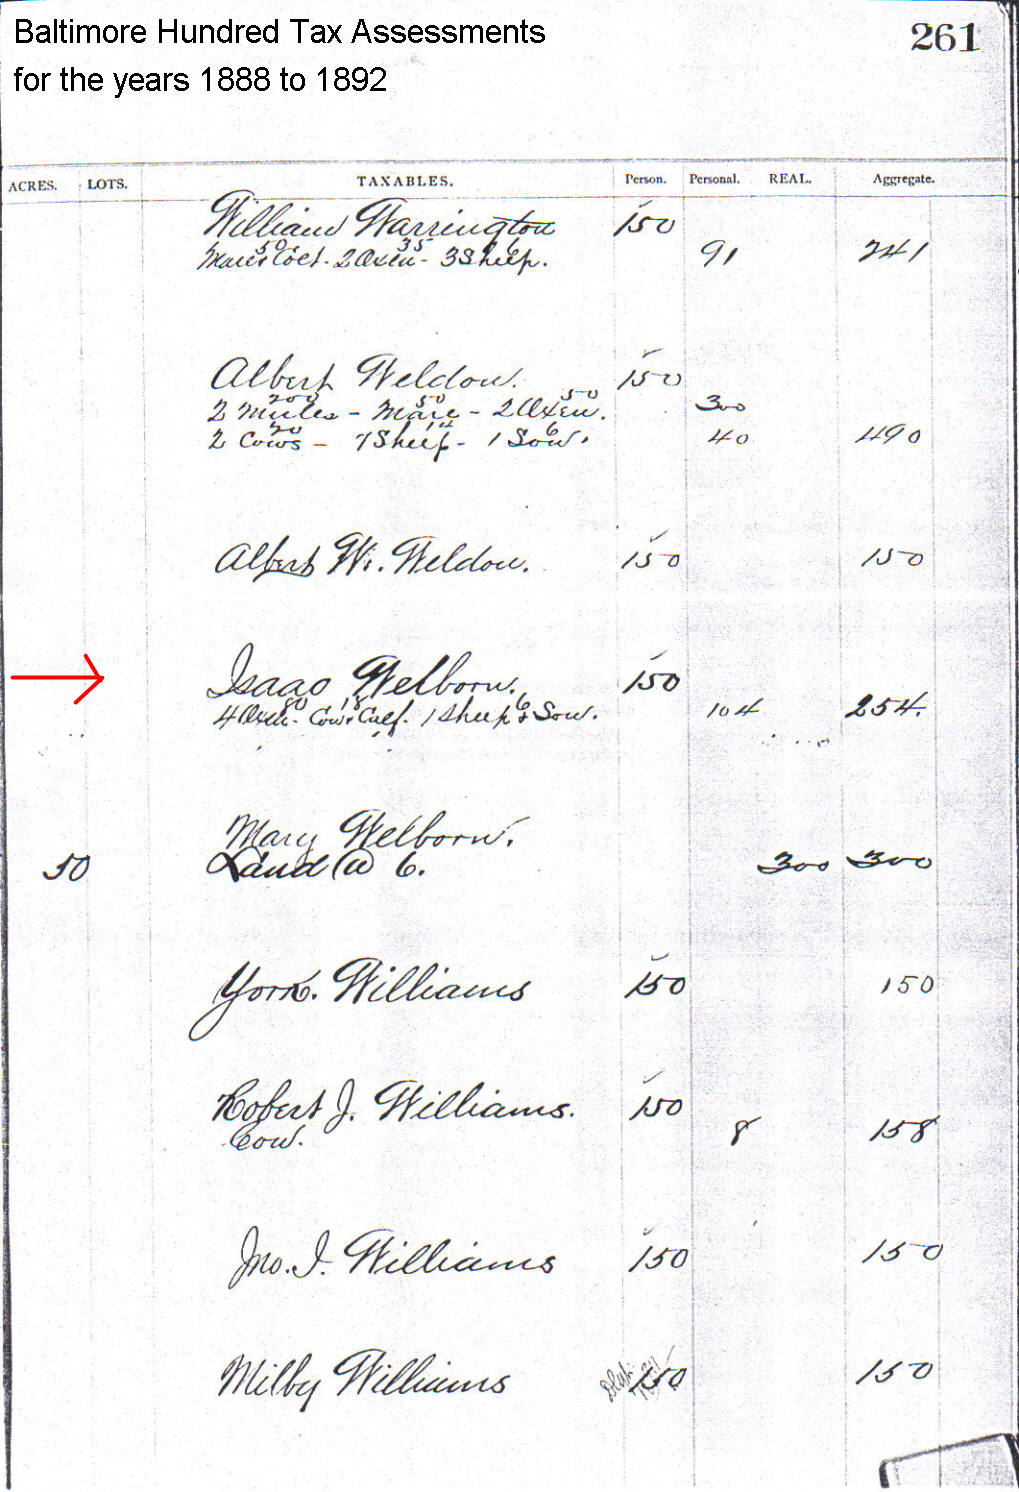 Baltimore Hundred Tax Assessments 261
for the years 1888 to 1892
ACRES. LOTS. TAXABLES. Person. Personal. REAL. Aggregate.
William Warrington 150
50 35 6
Mare & Colt - 2 Oxen - 3 Sheep. 91 241
Albert Weldon. 150
200 50 50
2 Mules - Mare - 2 Oxen. 300
20 14 6
2 Cows - 7 Sheep - 1 Sow. 40 490
Albert W. Weldon. 150 150
Isaac Welborn. 150
80 18 6
4 Oxen - Cow & Calf. 1 Sheep & Sow. 104 254.
Mary Welborn.
50 Land @ 6. 300 300
York. Williams 150 150
Robert J. Williams. 150
Cow. 8 158
Jno. I. Williams 150 150
Milby Williams 150 150